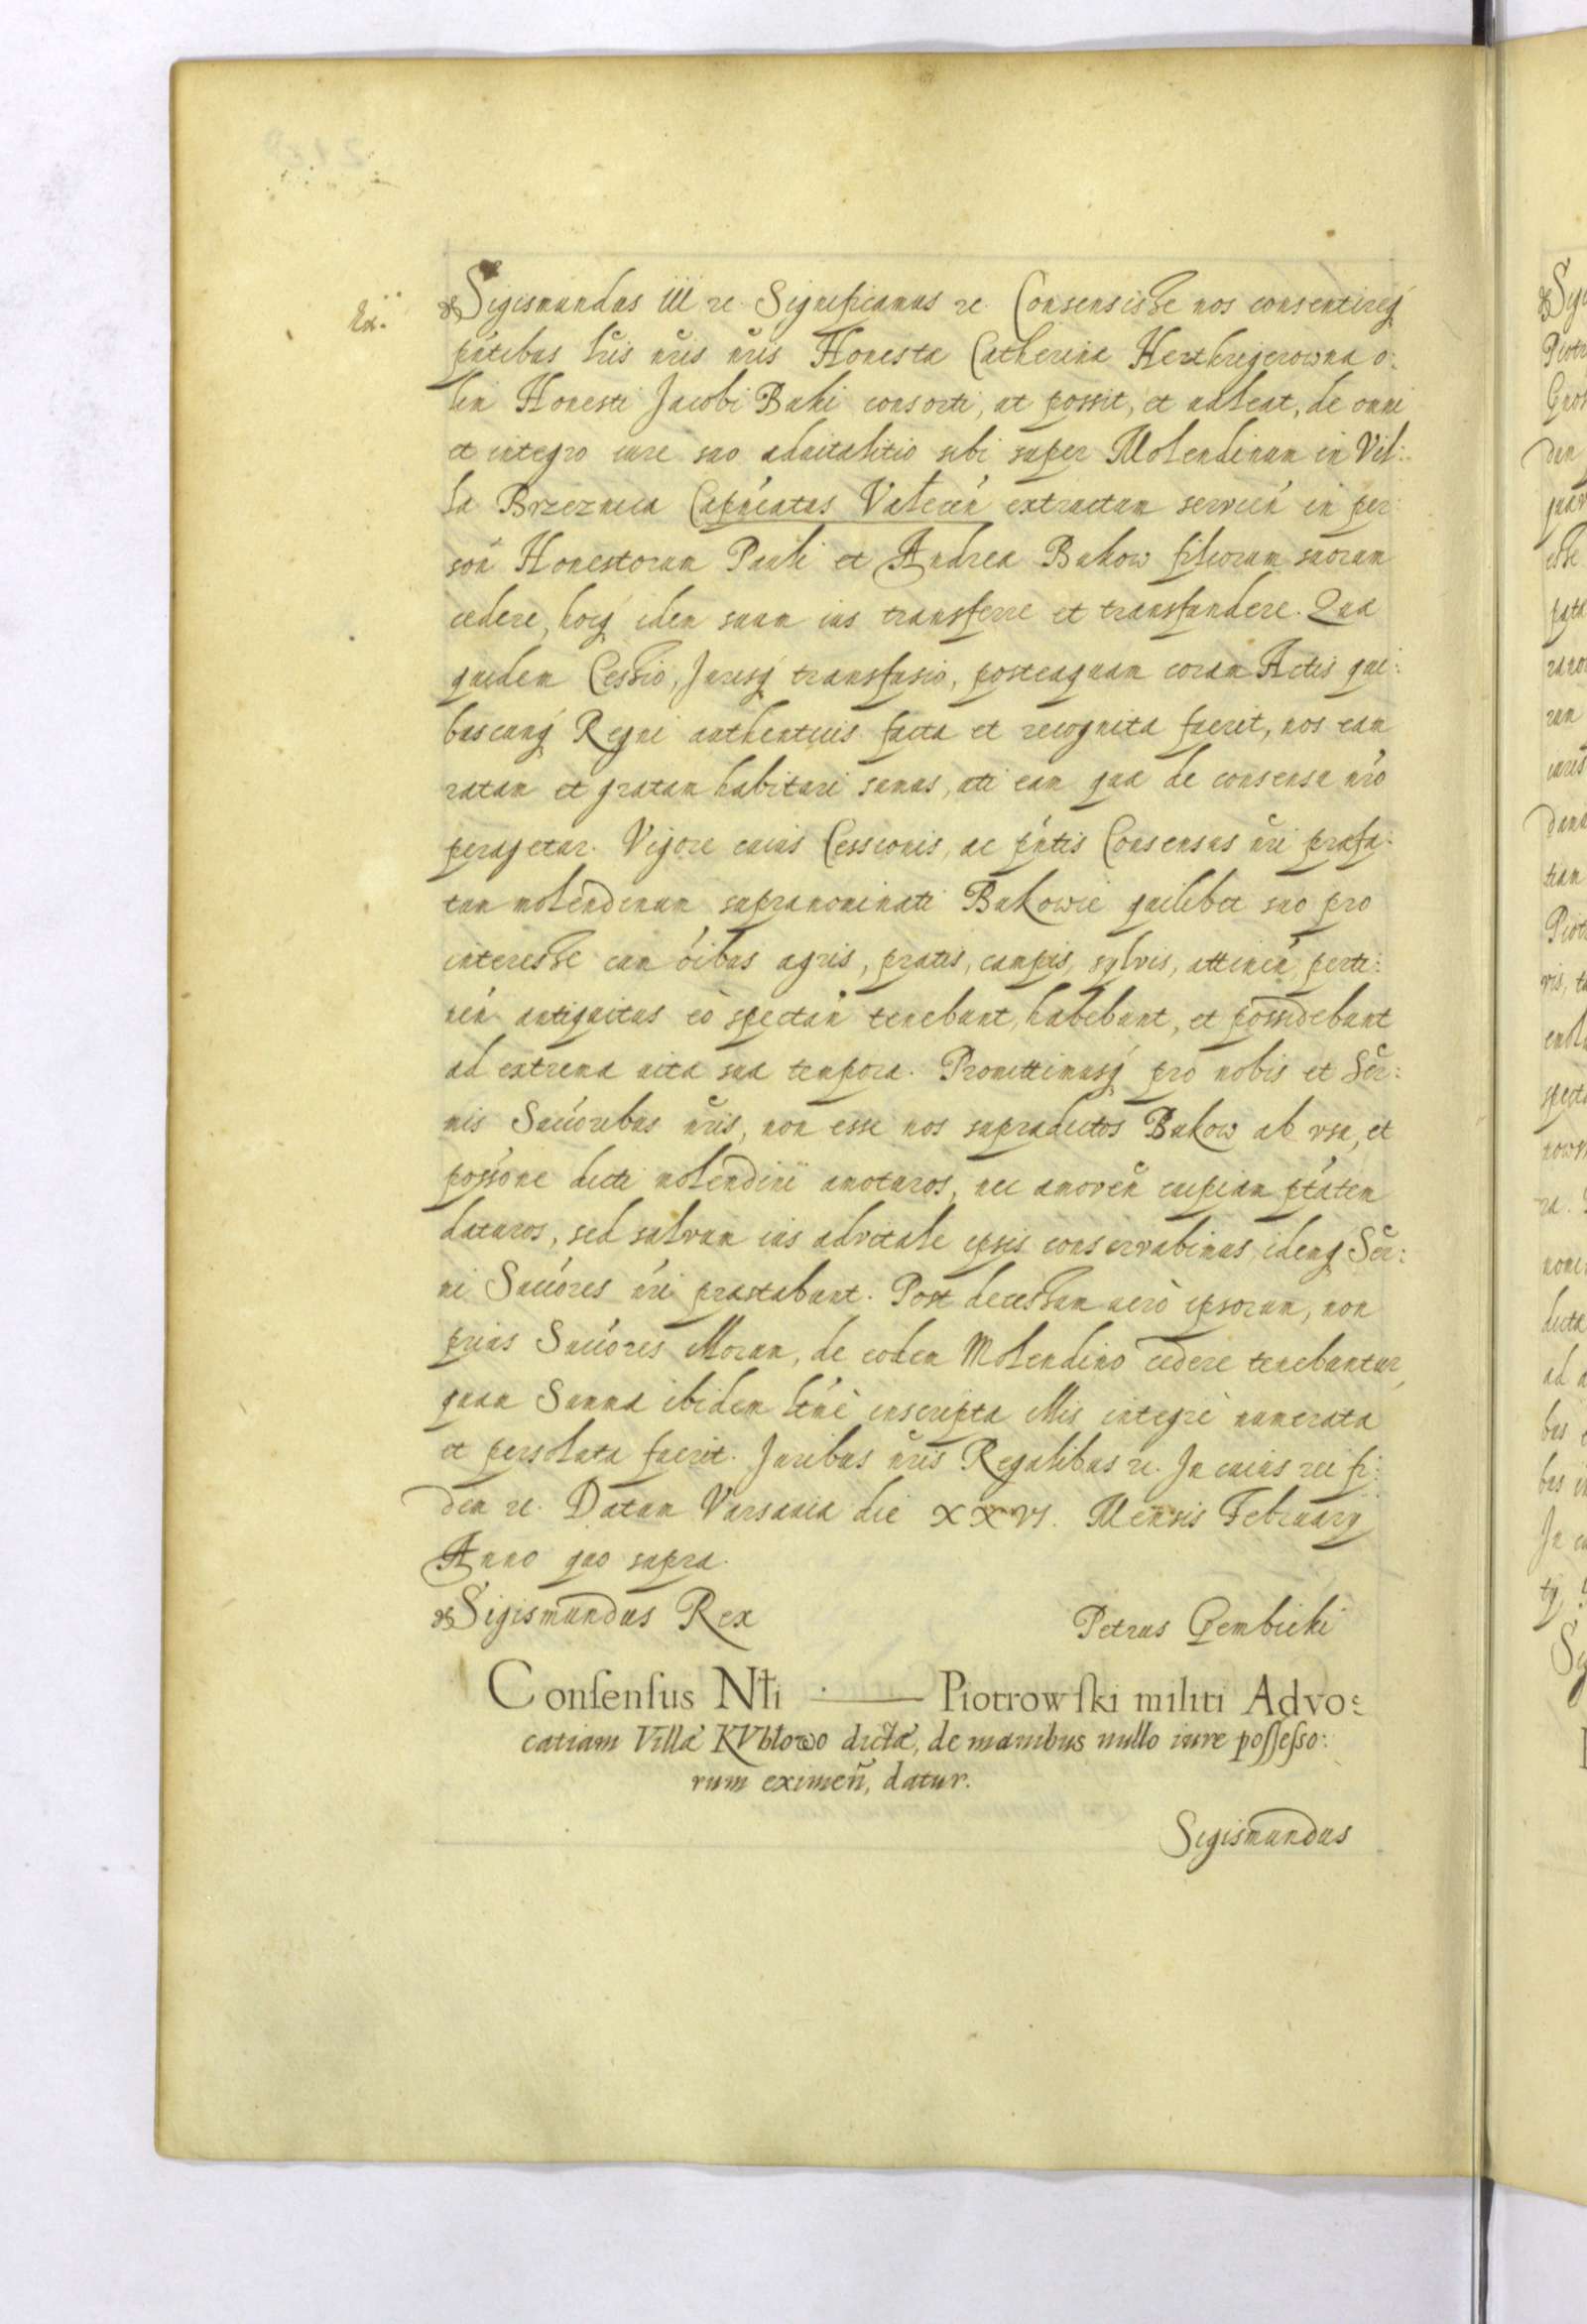 Sigismundus III re. Significamus re. Consensisse nos consentireq́
pńtibus lr̃is nr̃is nr̃is Honesta Catherina Herthrijerowna o:
lim Honesti Jacobi Buki consorti, ut possit, et valeat, de omni
et integro iure suo aduitalitio sibi super Molendinum in Vil:
la Brzeznica Capńeatus Valecen̄ extructum servień in per:
son̄ Honestorum Pauli et Andrea Bukow filiorum suorum
cedere, hocq́ idem suum ius transferre et transfundere. Qua
quidem Cessio, Jurisq́ transfusio, posteaquam coram Actis qui:
buscunq́ Regni authenticis facta et recognita fuerit, nos eam
ratam et gratam habituri sumus, uti eam qua de consensu nr̃o
peragetur. Vigore cuius Cessionis, ac pńtis Consensus nr̃i prafa:
tum molendinum supranominati Bukowie quilibet suo pro
interesse cum óibus agris, pratis, campis, sylvis, attineń, perti:
neń antiquitus eò spectań tenebunt, habebunt, et possidebunt
ad extrema uita sua tempora. Promittimusq́ pro nobis et Ser̃:
mis Saccóribus nr̃is, non esse nos supradictos Bukow ab vsu, et
possóne dicti molendini amoturos, nec amoven̄ cuipiam ptátem
daturos, sed salvum ius advitale ipsis conservabimus, idemq́ Ser̃:
mi Succóres nr̃i prastabunt. Post decessum uerò ipsorum, non
prius Succóres illorum, de eodem Molendino cedere tenebuntur,
quam Summa ibidem ltiḿè inscripta illis integrè numerata
et persoluta fuerit. Juribus nr̃is Regalibus re. In cuius rei fi:
dem re. Datum Varsauia die XXVI. Mensis February
Anno quo supra.
Sigismundus Rex
Petrus Gembicki
Consensus Nłi · —— Piotrowski militi Advo:
catiam Villæ KVbłowo dictæ, de manibus nullo iure possesso:
rum eximeñ, datur.
Sigismundus